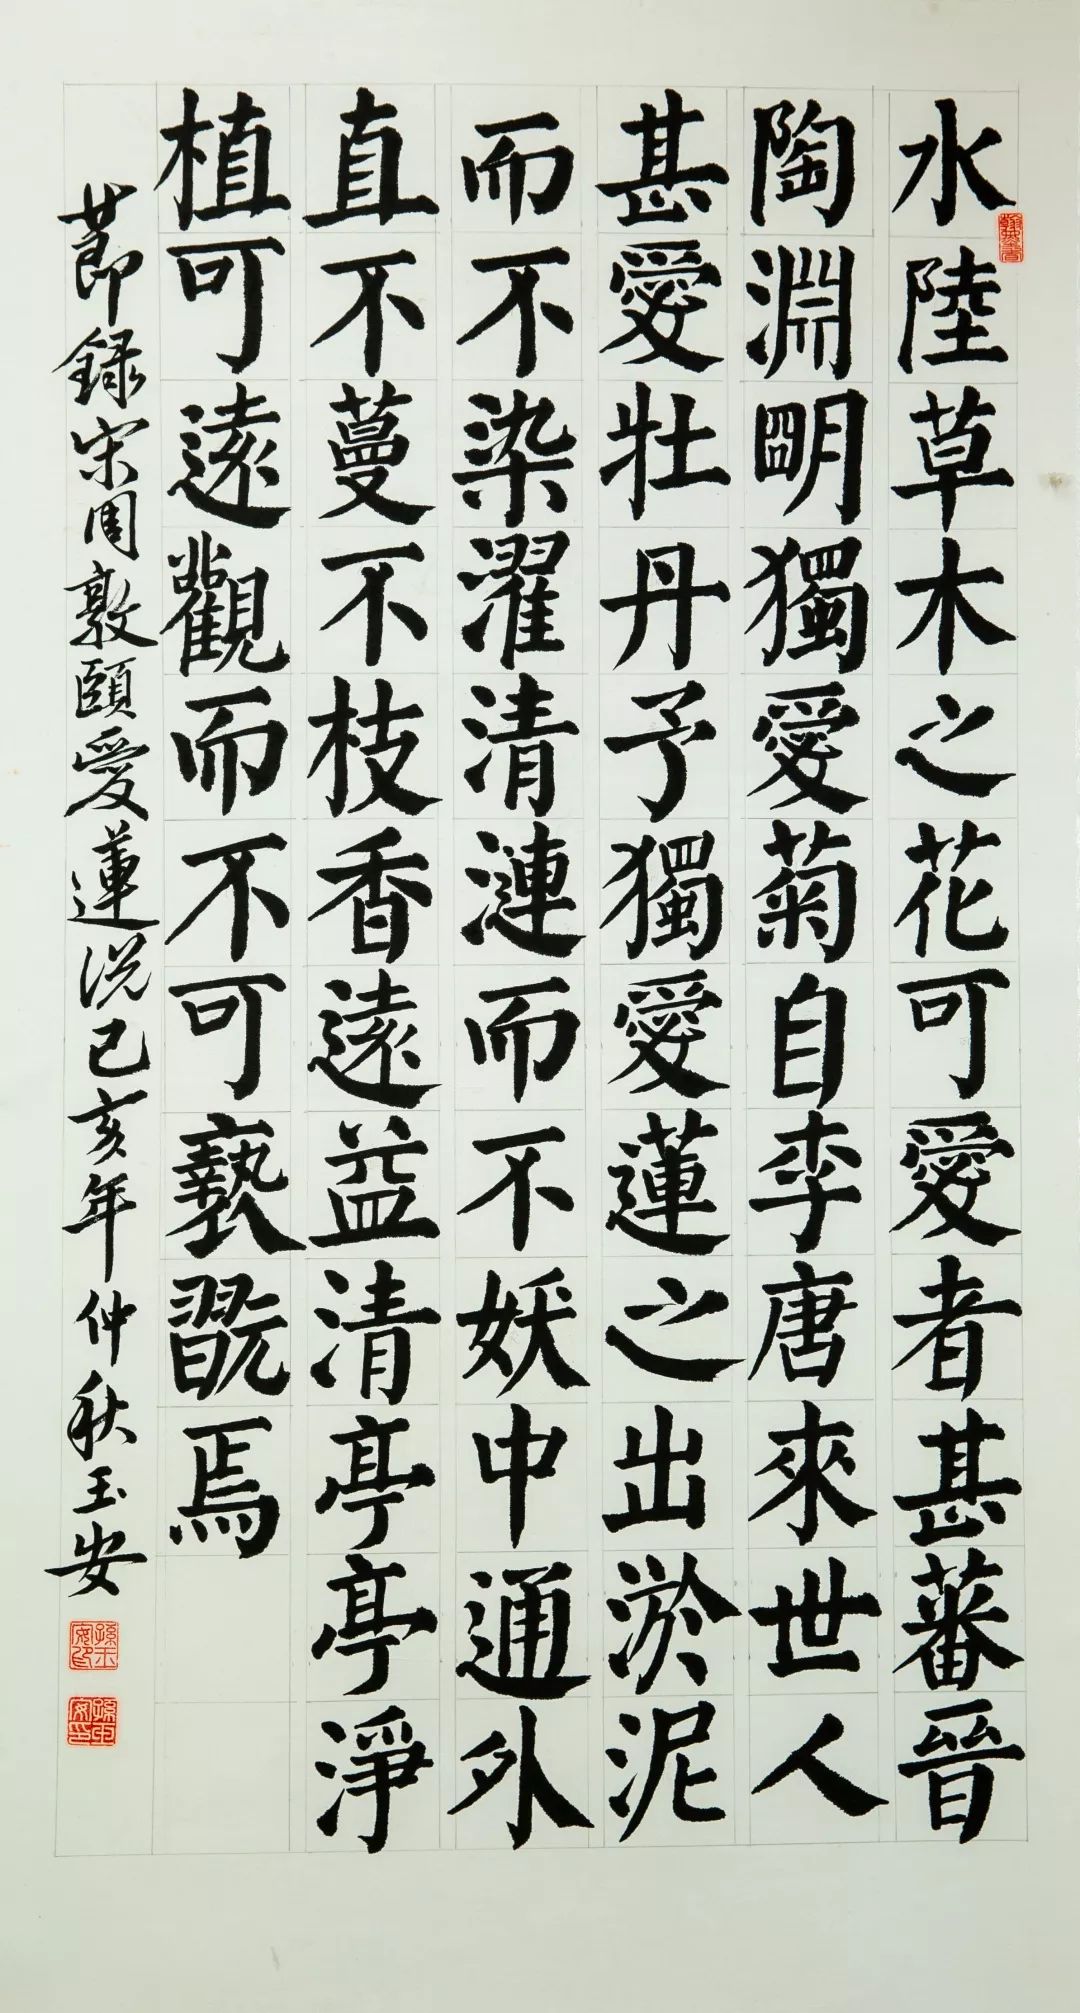 水陸草木之花可愛者甚蕃晉
陶淵明獨愛菊自李唐來世人
甚愛牡丹予獨愛蓮之出淤泥
而不染濯清漣而不妖中通外
直不蔓不枝香遠益清亭亭淨
植可遠觀而不可褻翫焉
節録宋周敦頤愛蓮说己亥年仲秋玉安
孫玉安印